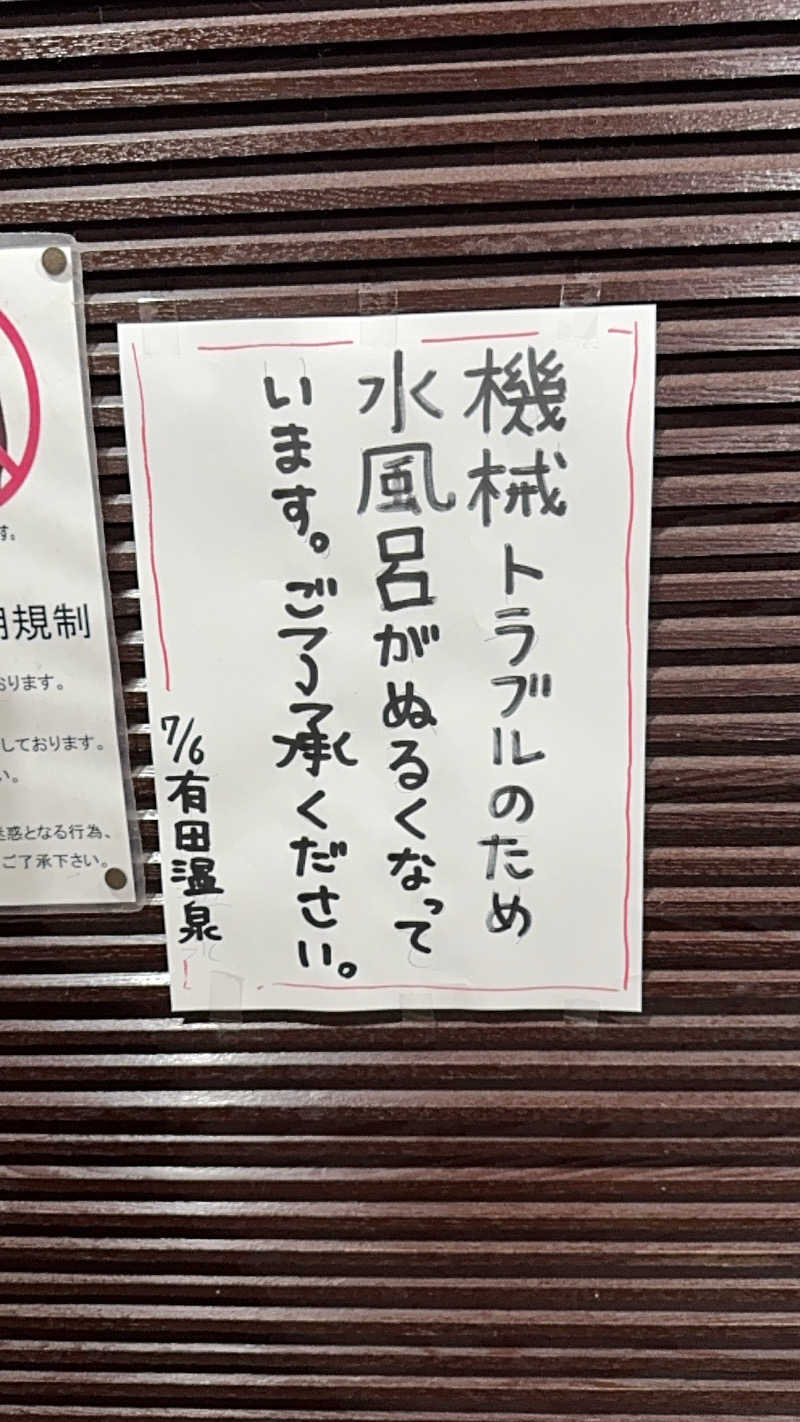 機械トラブルのため
水風呂がぬるくなって
います。ご了承ください。
7/6 有田温泉
す。
規制
おります。
しております。
い。
惑となる行為、
ご了承下さい。